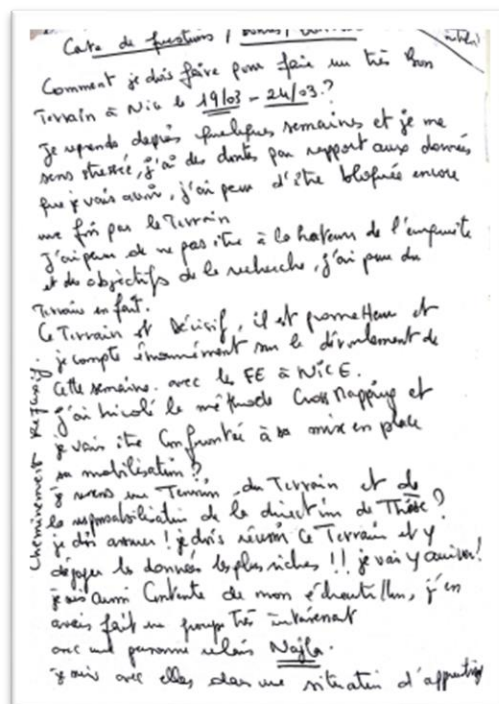 Carte de questions / Doutes /
Comment je dois faire pour faire un très Bon
Terrain à Nice le 19/03 - 24/03 ?
Je reprends depuis quelques semaines et je me
sens stressée, j'ai des doutes par rapport aux données
que je vais avoir, j'ai peur d'être bloquée encore
une fois par le Terrain
J'ai peur de ne pas être à la hauteur de l'enquête
et des objectifs de la recherche, j'ai peur du
Terrain en fait.
Ce Terrain est Décisif, il est prometteur et
je compte énormément sur le déroulement de
cette semaine. avec les FE à NICE.
j'ai bricolé la méthode Cross Mapping et
je vais être Confrontée à sa mise en place
sa mobilisation ?
je ressens une Tension du Terrain et de
la responsabilisation de la direction de Thèse ?
je dois assumer ! je dois réussir ce Terrain et y
dégager les données les plus riches !! je vais y arriver !
je suis aussi Contente de mon échantillon, j'en
avais fait un groupe Très intéressant
avec une personne relais Najla.
je suis avec elles dans une situation d'apprentis
Cheminement Réflexif.